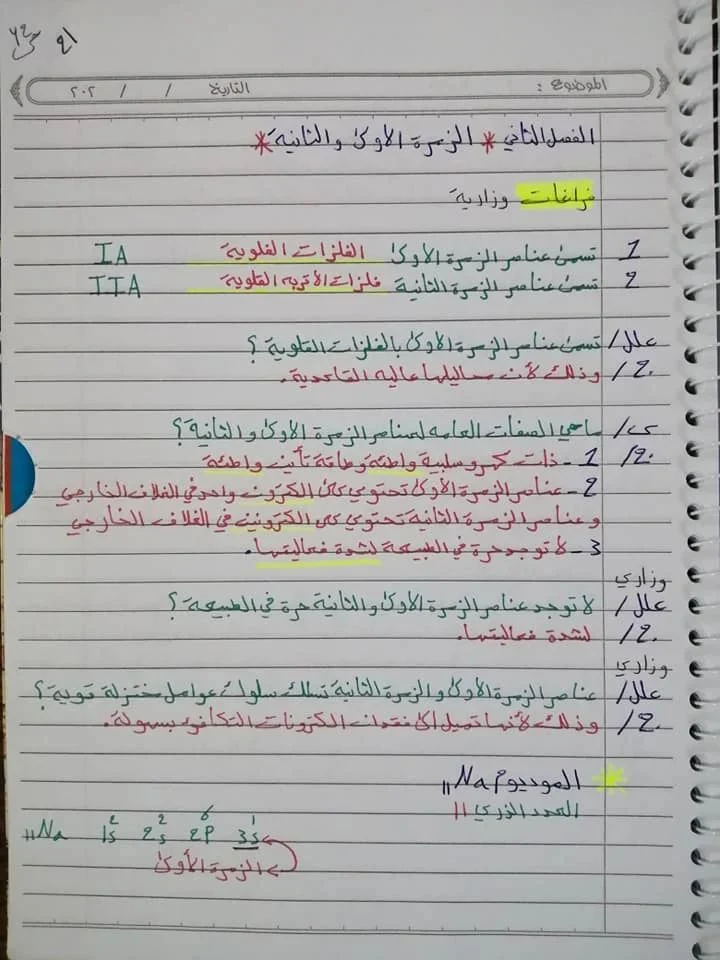 ٢١
الموضوع : التاريخ / / ٢٠٢
الفصل الثاني * الزمرة الاولى والثانية *
فراغات وزارية
1 تسمى عناصر الزمرة الأولى الفلزات القلوية IA
2 تسمى عناصر الزمرة الثانية فلزات الأتربة القلوية IIA
علل/ تسمى عناصر الزمرة الأولى بالفلزات القلوية ؟
ج/ وذلك لأن محاليلها عالية القاعدية.
س/ ماهي الصفات العامه لعناصر الزمرة الأولى والثانية ؟
ج/ 1- ذات كهروسلبية واطئة وطاقة تأين واطئة
2- عناصر الزمرة الأولى تحتوي على الكترون واحد في الغلاف الخارجي
وعناصر الزمرة الثانية تحتوي على الكترونين في الغلاف الخارجي
3- لا توجد حرة في الطبيعة لشدة فعاليتها.
وزاري
علل/ لا توجد عناصر الزمرة الأولى والثانية حرة في الطبيعة ؟
ج/ لشدة فعاليتها.
وزاري
علل/ عناصر الزمرة الأولى والزمرة الثانية تسلك سلوك عوامل مختزلة قوية ؟
ج/ وذلك لأنها تميل الى فقدان الكترونات التكافؤ بسهولة.
الصوديوم ₁₁Na
العدد الذري 11
₁₁Na 1s² 2s² 2P⁶ 3s¹
الزمرة الأولى